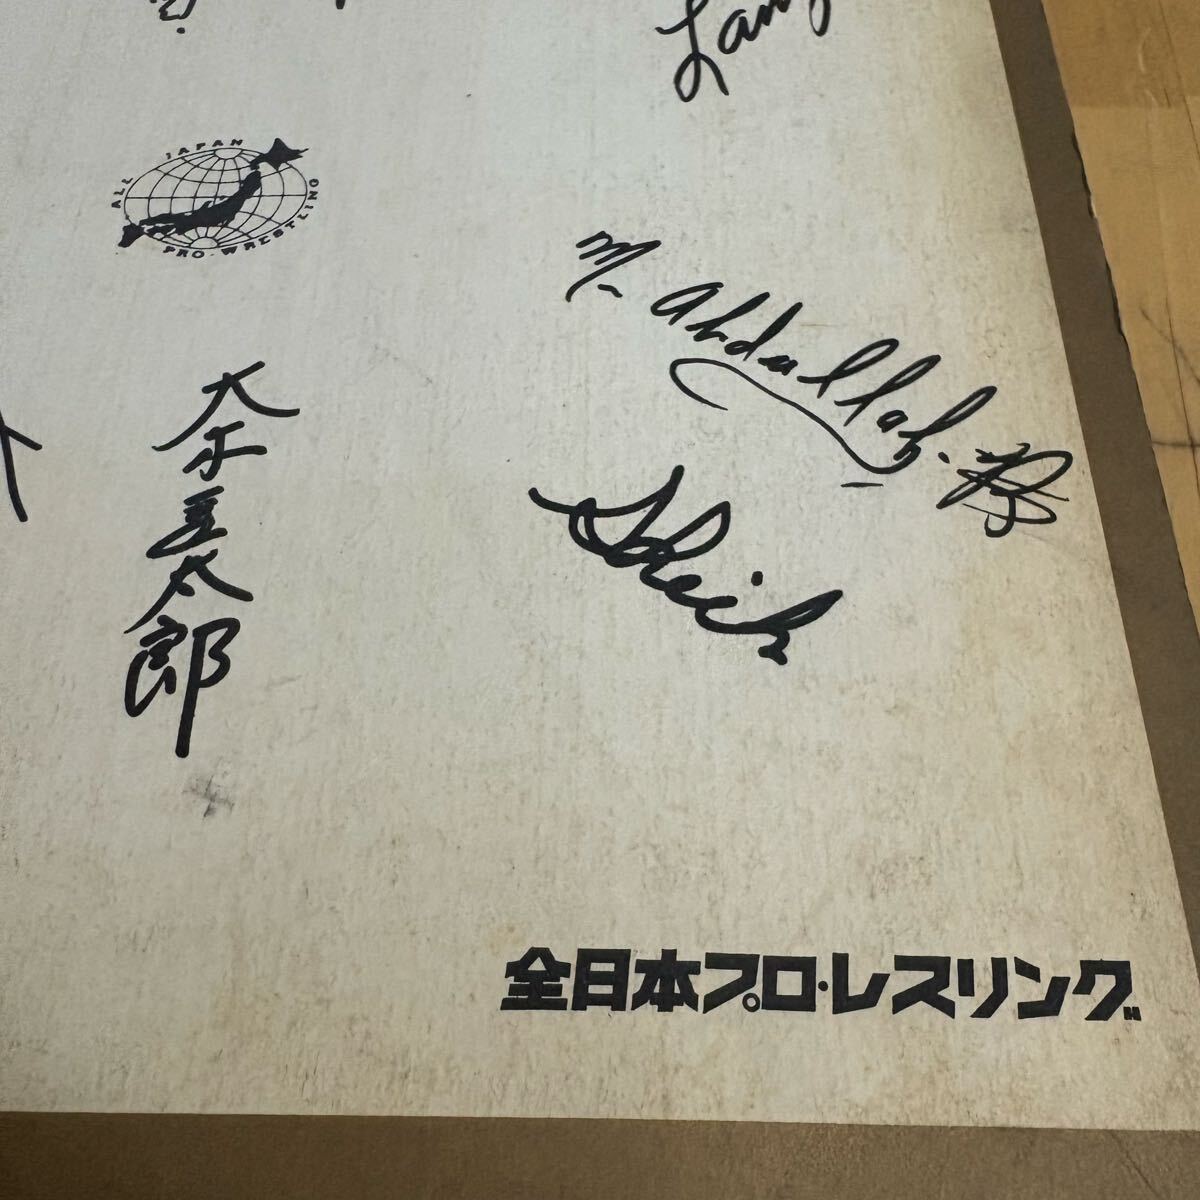 ALL JAPAN
PRO-WRESTLING
M. Abdullah. B
大木金太郎
Sheik
全日本プロ・レスリング